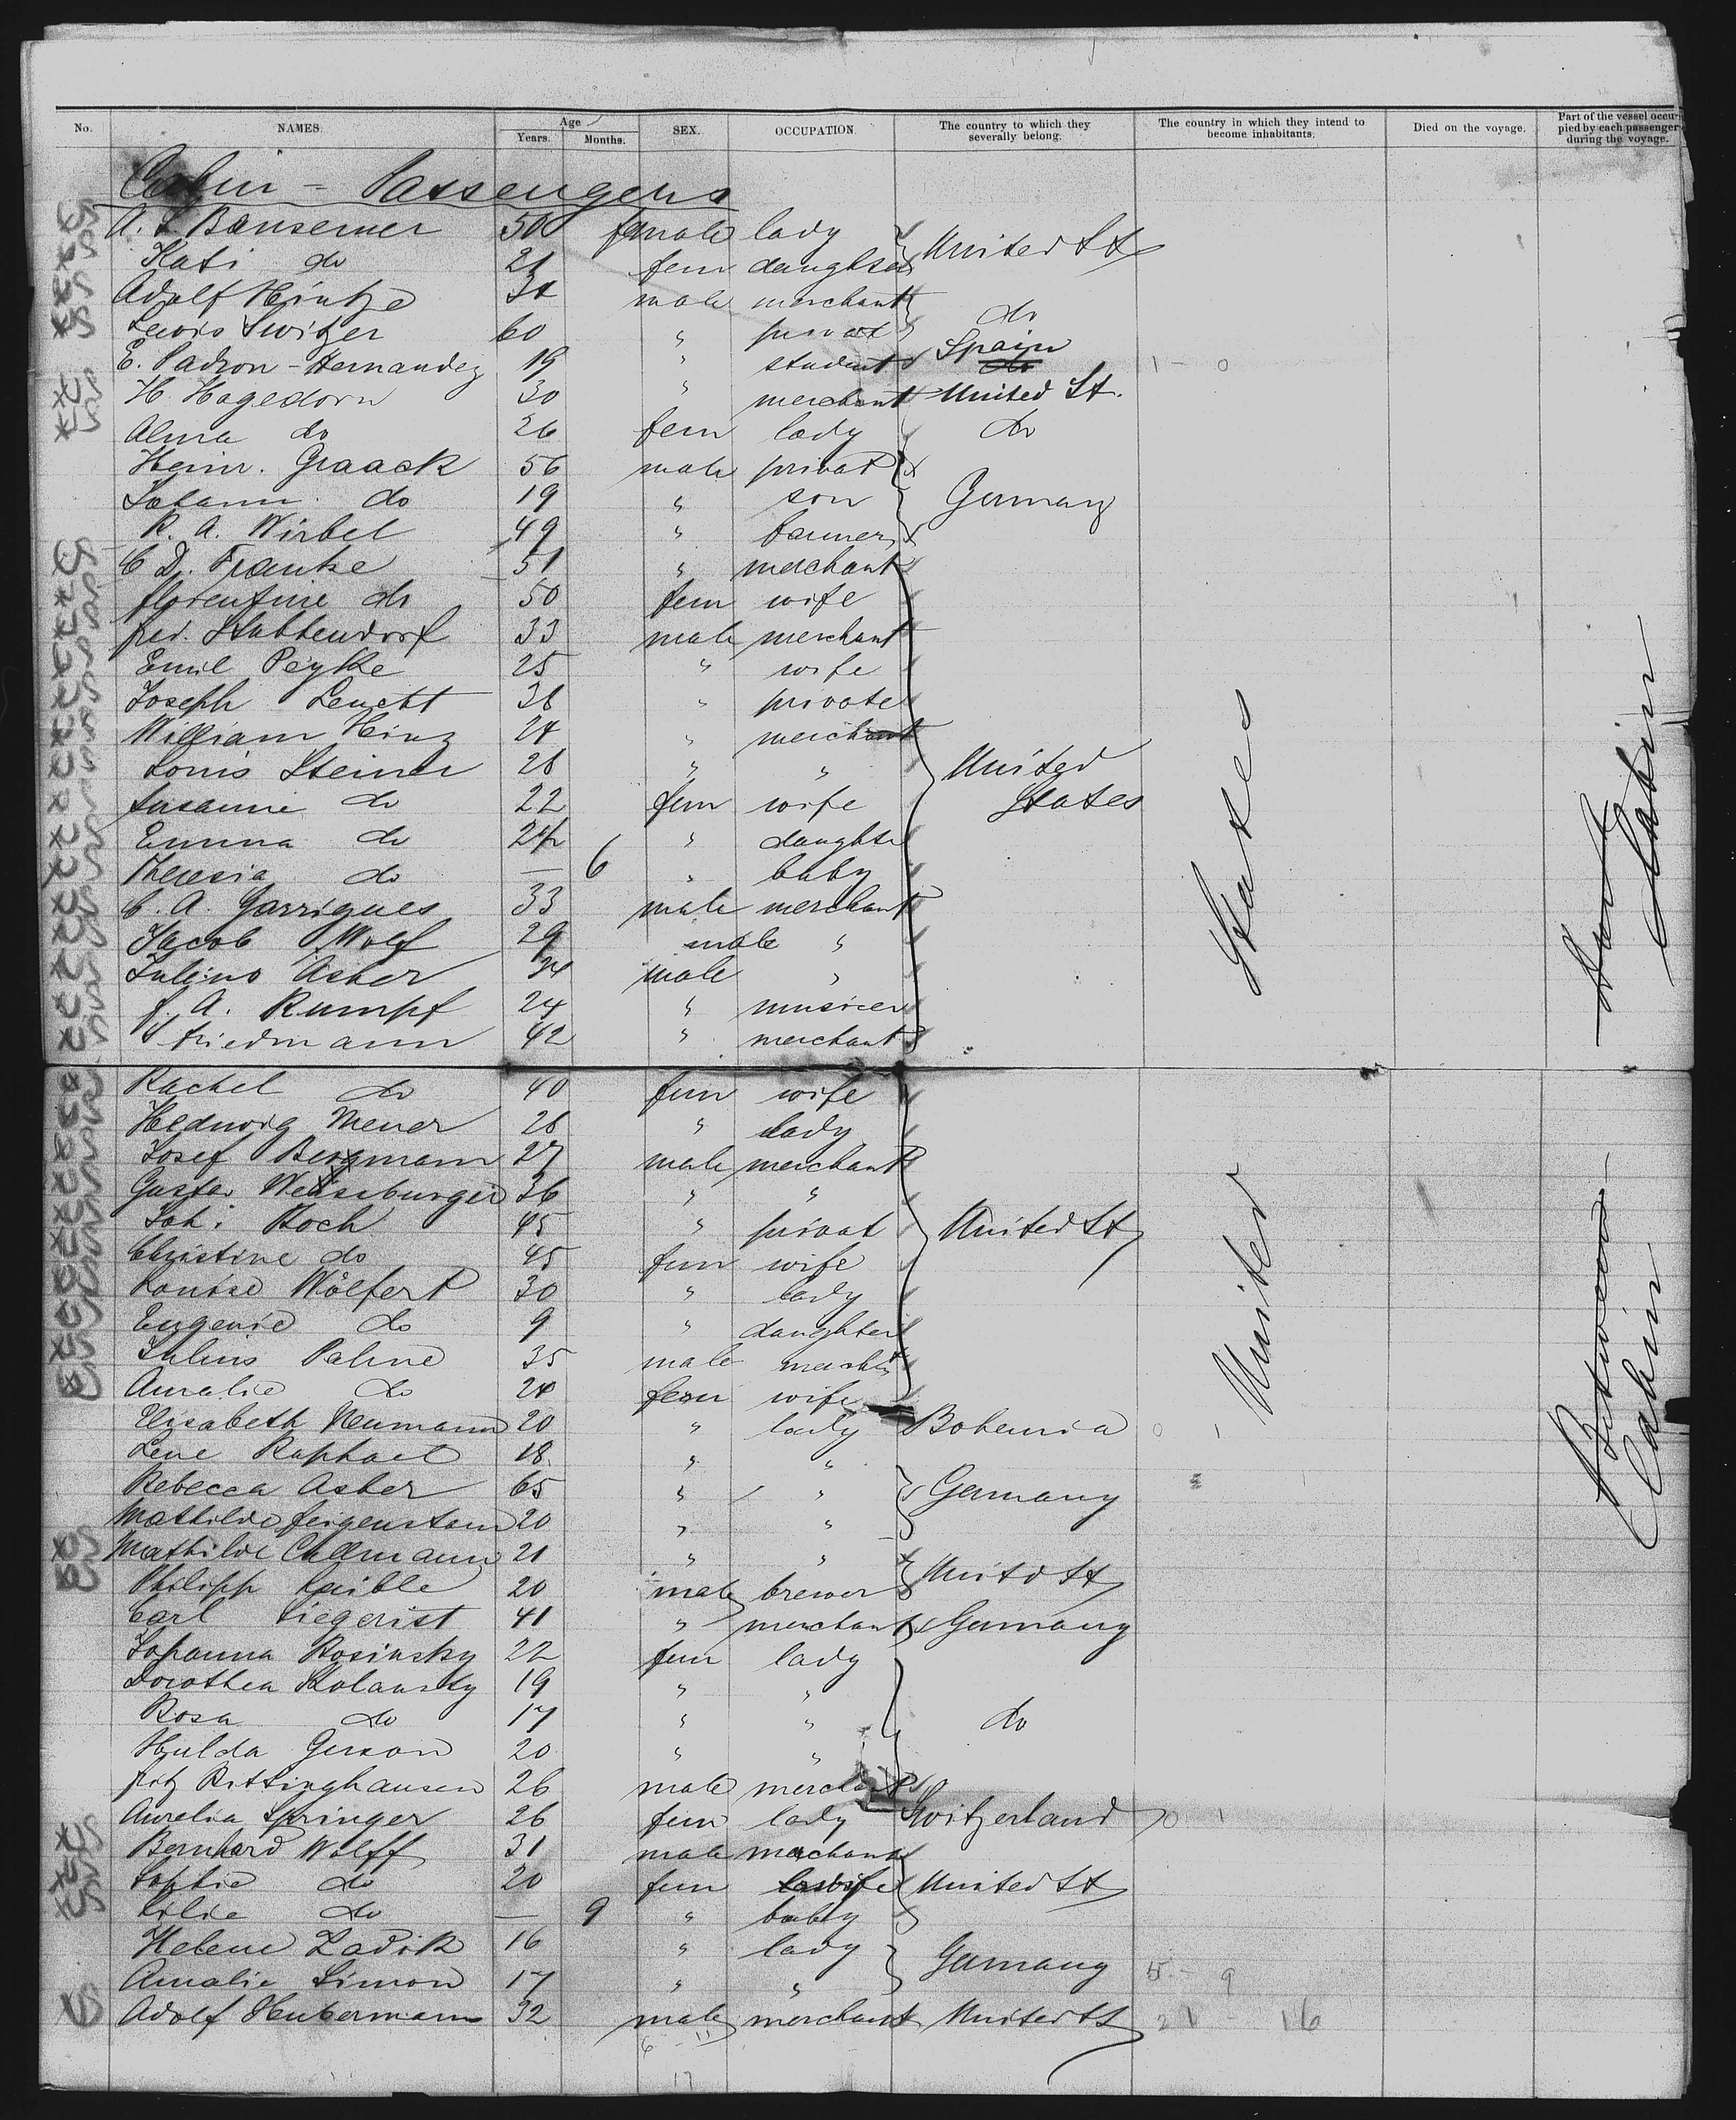 No. NAMES. Age Years. Months. SEX. OCCUPATION. The country to which they severally belong. The country in which they intend to become inhabitants. Died on the voyage. Part of the vessel occupied by each passenger during the voyage.
Cabin - Passengers
A. L. Bansemer 50 female lady United St
Kati do 21 fem daughter
Adolf Hintze 34 male merchant
Lewis Switzer 60 " privat do
E. Padron-Hernandez 19 " student Spain
H. Hagedorn 30 " merchant United St.
Alma do 26 fem lady do
Heinr. Graack 56 male privat
Johann do 19 " son Germany
R. A. Wirbel 49 " farmer
C. D. Franke 51 " merchant
Florentine do 50 fem wife
Fred. Stubbendorf 33 male merchant
Emil Peyke 25 " wife
Joseph Leucht 38 " private
William Hinz 24 " merchant
Louis Steiner 28 " " United States
Susanne do 22 fem wife
Emma do 2 " daughter
Theresia do — 6 " baby
C. A. Garrigues 33 male merchant
Jacob Wolf 29 male "
Julius Asher 34 male "
F. A. Rumpf 24 " musicer
S Friedmann 42 " merchant
Rachel do 40 fem wife
Hedwig Meuer 28 " lady
Josef Bergmann 27 male merchant
Gustav Weissburger 36 " "
Joh: Boch 45 " privat United St
Christine do 45 fem wife
Louise Wölfert 30 " lady
Eugenie do 9 " daughter
Julius Palme 35 male mercht
Amalie do 24 fem wife
Elisabeth Neumann 20 " lady Bohemia 0 1
Lene Raphael 18 " "
Rebecca Asher 65 " " Germany
Mathilde Feigenstam 20 " "
Mathilde Callmann 21 " " United St
Philipp Laible 20 male brewer
Carl Siegerist 41 " merchant Germany
Johanna Rosinsky 22 fem lady
Dorothea Skolansky 19 " "
Rosa do 17 " " do
Hulda Gerson 20 " "
Fritz Rittinghausen 26 male merchant
Aurelia Springer 26 fem lady Switzerland 0 1
Bernhard Wolff 31 male merchant
Sophie do 20 fem wife United St
Lilie do — 9 " baby
Helene Zadik 16 " lady Germany
Amalie Simon 17 " " 15 - 9
Adolf Hubermann 32 male merchant United St 21 - 16
6 - 11
17
United States
Cabin
Between
Cabin